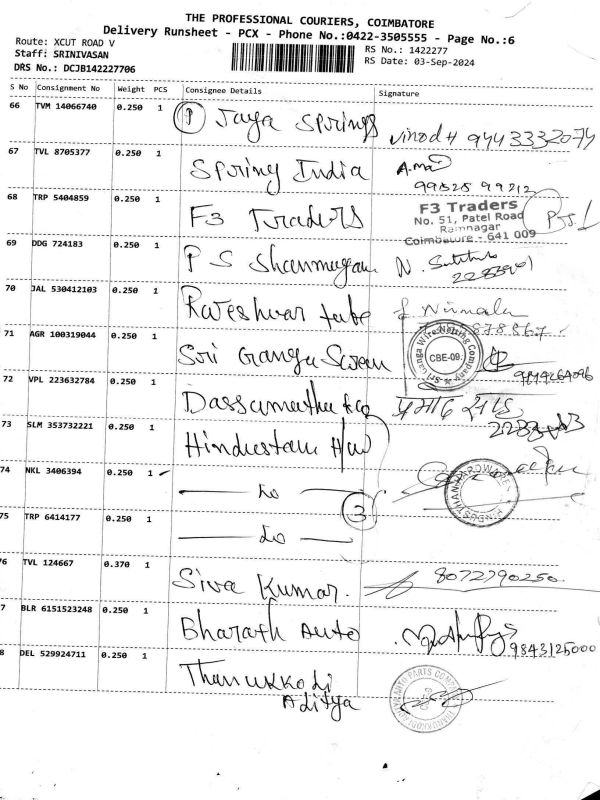 THE PROFESSIONAL COURIERS, COIMBATORE
Delivery Runsheet - PCX - Phone No.:0422-3505555 - Page No.:6
Route: XCUT ROAD V
Staff: SRINIVASAN
DRS No.: DCJB142227706
RS No.: 1422277
RS Date: 03-Sep-2024
S No Consignment No Weight PCS Consignee Details Signature
66 TVM 14066740 0.250 1 Jaya Springs Vinod H 9443332074
67 TVL 8705377 0.250 1 Spring India
68 TRP 5404859 0.250 1 F3 Traders
F3 Traders
No. 51, Patel Road
Ramnagar
Coimbatore - 641 009
69 DDG 724183 0.250 1 P S Shanmugam N.
70 JAL 530412103 0.250 1 Rajeshwar tube Nirmala
71 AGR 100319044 0.250 1 Sri Ganga
CBE-09.
72 VPL 223632784 0.250 1
73 SLM 353732221 0.250 1 Hindustan
74 NKL 3406394 0.250 1 do
3
75 TRP 6414177 0.250 1 do
HINDUSTHAN HARDWARES
76 TVL 124667 0.370 1 Siva Kumar. 8072790250
7 BLR 6151523248 0.250 1 Bharath Auto 9843125000
8 DEL 529924711 0.250 1 Thanukkodi
Aditya